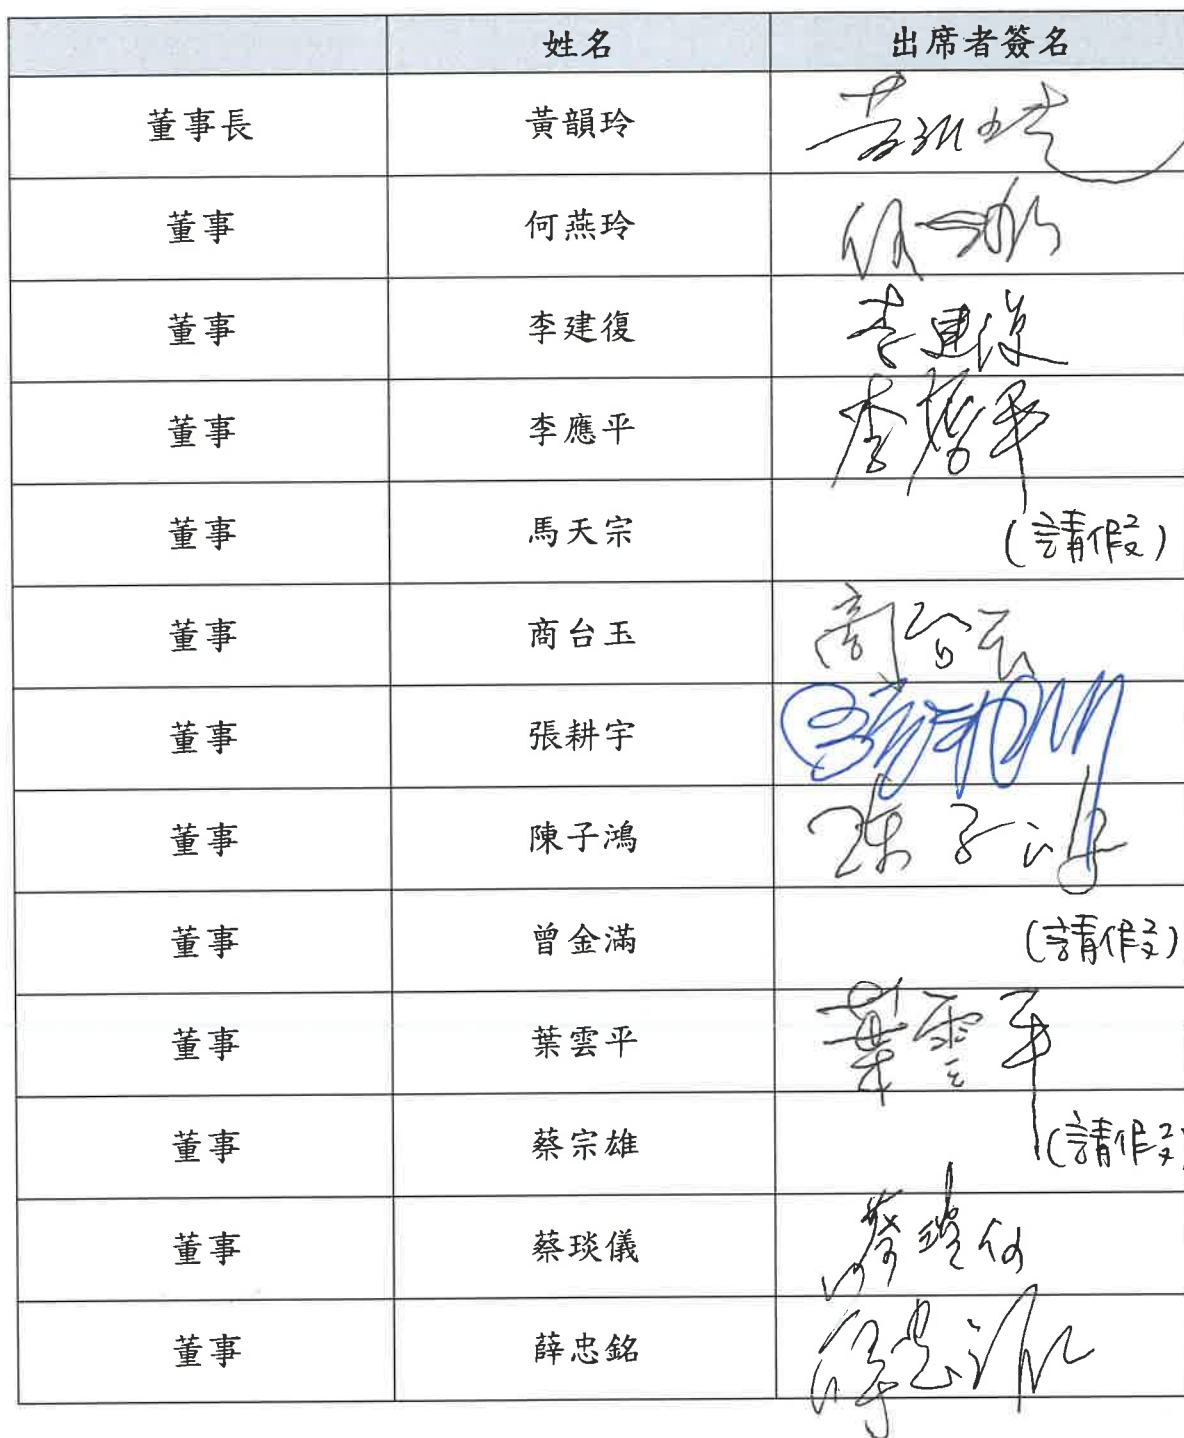 姓名 出席者簽名
董事長 黃韻玲
董事 何燕玲
董事 李建復 李建復
董事 李應平 李應平
董事 馬天宗 (請假)
董事 商台玉 商台玉
董事 張耕宇
董事 陳子鴻 陳子鴻
董事 曾金滿 (請假)
董事 葉雲平 葉雲平
董事 蔡宗雄 (請假)
董事 蔡琰儀 蔡琰儀
董事 薛忠銘 薛忠銘